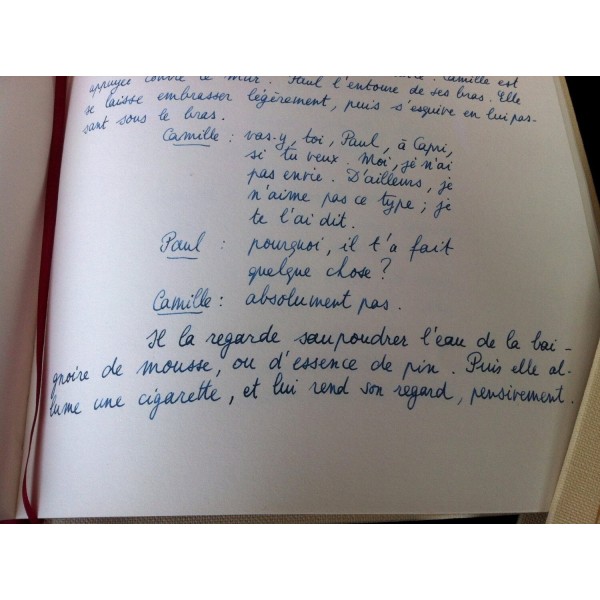 Camille est
appuyée contre le mur. Paul l'entoure de ses bras. Elle
se laisse embrasser légèrement, puis s'esquive en lui pas-
sant sous le bras.
Camille : vas-y, toi, Paul, à Capri,
si tu veux. Moi, je n'ai
pas envie. D'ailleurs, je
n'aime pas ce type ; je
te l'ai dit.
Paul : pourquoi, il t'a fait
quelque chose ?
Camille : absolument pas.
Il la regarde saupoudrer l'eau de la bai-
gnoire de mousse, ou d'essence de pin. Puis elle al-
lume une cigarette, et lui rend son regard, pensivement.